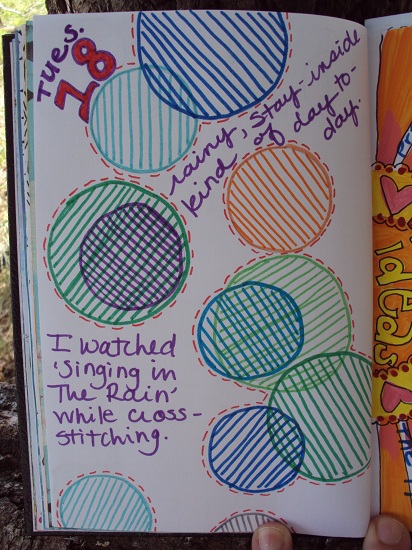 Tues.
18
rainy, stay-inside
kind of day to-
day.
I watched
'Singing in
The Rain'
while cross-
stitching.
Ideas